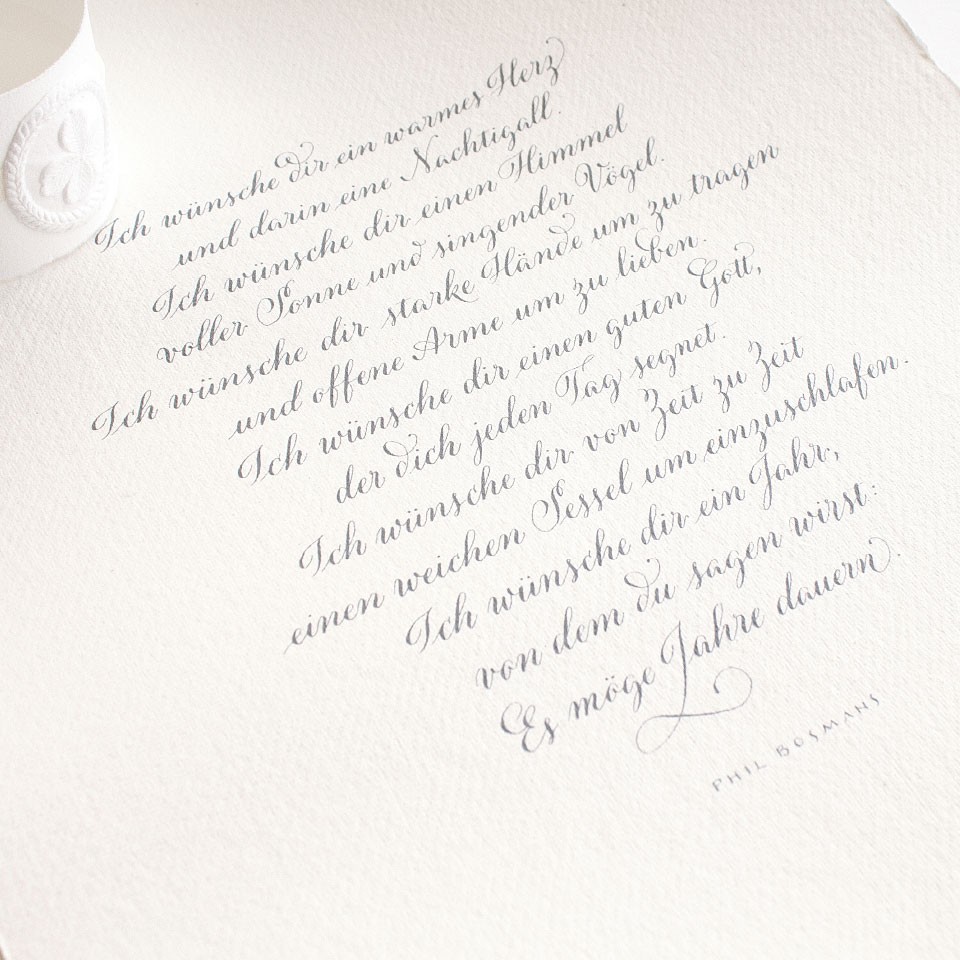 Ich wünsche dir ein warmes Herz
und darin eine Nachtigall.
Ich wünsche dir einen Himmel
voller Sonne und singender Vögel.
Ich wünsche dir starke Hände um zu tragen
und offene Arme um zu lieben.
Ich wünsche dir einen guten Gott,
der dich jeden Tag segnet.
Ich wünsche dir von Zeit zu Zeit
einen weichen Sessel um einzuschlafen.
Ich wünsche dir ein Jahr,
von dem du sagen wirst:
Es möge Jahre dauern.
PHIL BOSMANS